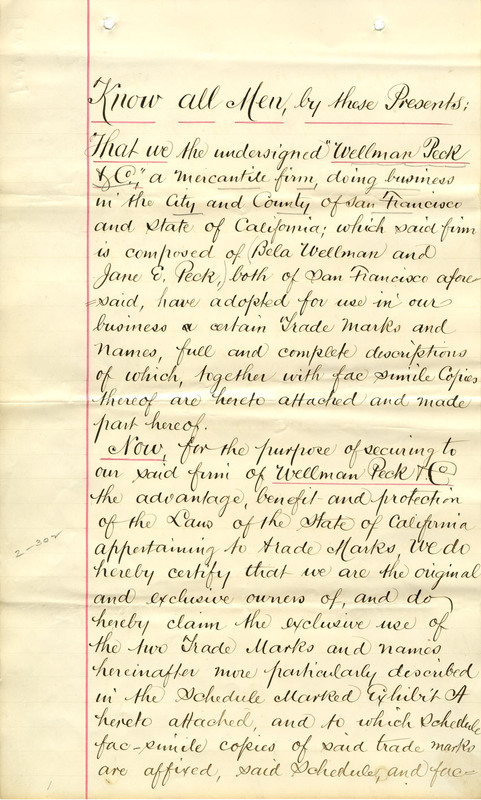 Know all Men, by these Presents;
That we the undersigned "Wellman Peck
& Co," a Mercantile firm, doing business
in the City and County of San Francisco
and State of California; which said firm
is composed of (Bela Wellman and
Jane E. Peck,) both of San Francisco afore=
=said, have adopted for use in our
business certain Trade Marks and
Names, full and complete descriptions
of which, together with fac simile Copies
thereof are hereto attached and made
part hereof.
Now, for the purpose of securing to
our said firm of Wellman Peck & Co
the advantage, benefit and protection
of the Laws of the State of California
appertaining to trade Marks, We do
hereby certify that we are the original
and exclusive owners of, and do
hereby claim the exclusive use of
the two Trade Marks and names
hereinafter more particularly described
in the Schedule Marked Exhibit A
hereto attached, and to which Schedule
fac-simile copies of said trade marks
are affixed, said Schedule, and fac=
2-302